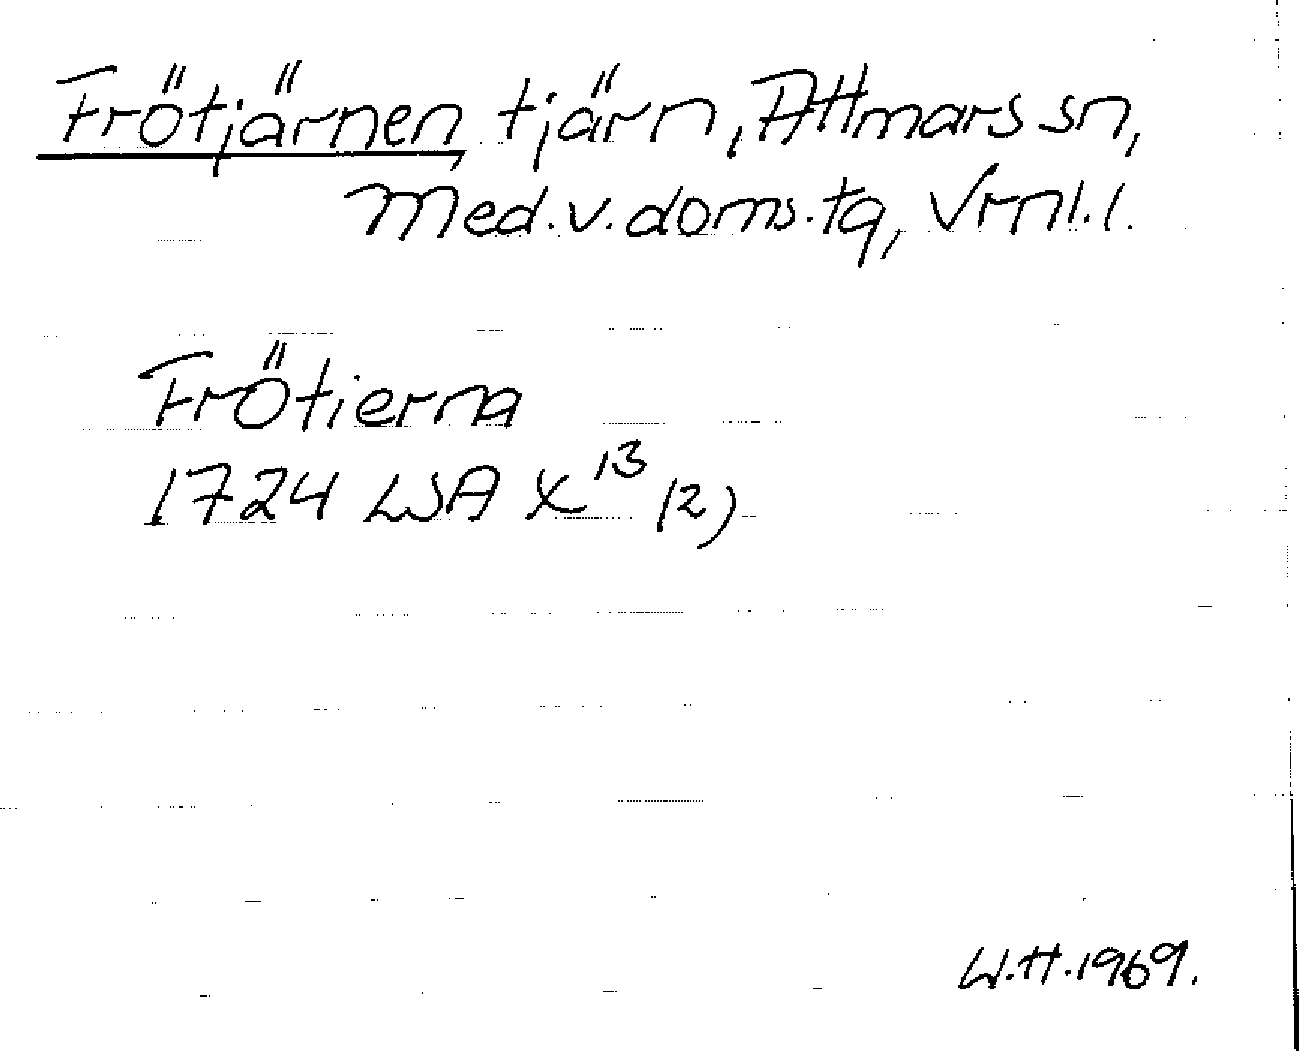 Frötjärnen, tjärn, Attmars sn,
Med.v.doms.tg, Vrnl.l.
Frötierna
1724 LSA X¹³ (2)
W.H.1969.